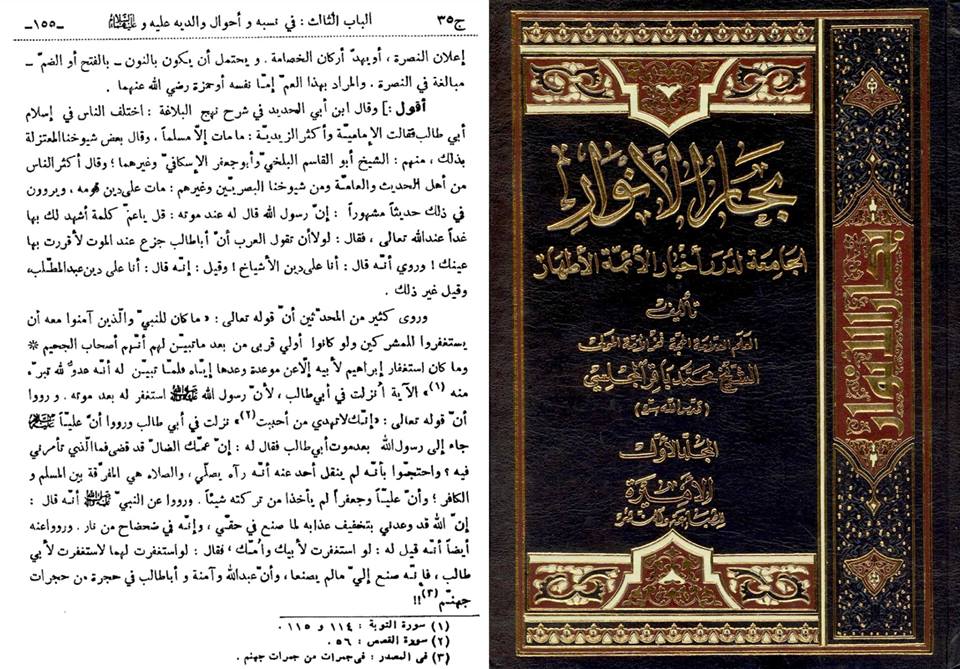 ج٣٥ الباب الثالث : في نسبه و أحوال والديه عليه و عليهما السلام ـ١٥٥ـ
إعلان النصرة ، أويهدّ أركان الخصامة . و يحتمل أن يكون بالنون ـ بالفتح أو الضمّ ـ
مبالغة في النصرة . والمراد بهذا العمّ إمّا نفسه أوحمزة رضي الله عنهما .
أقول :] وقال ابن أبي الحديد في شرح نهج البلاغة : اختلف الناس في إسلام
أبي طالب فقالت الإماميّة وأكثر الزيديّة : مامات إلاّ مسلماً . وقال بعض شيوخنا المعتزلة
بذلك ، منهم : الشيخ أبو القاسم البلخيّ وأبوجعفر الإسكافيّ وغيرهما ؛ وقال أكثر الناس
من أهل الحديث والعامّة ومن شيوخنا البصريّين وغيرهم : مات على دين قومه . ويروون
في ذلك حديثاً مشهوراً : إنّ رسول الله قال له عند موته : قل ياعمّ كلمة أشهد لك بها
غداً عندالله تعالى ، فقال : لولاأن تقول العرب أنّ أباطالب جزع عند الموت لأقررت بها
عينك ! وروي أنّه قال : أنا على دين الأشياخ ! وقيل : إنّه قال : أنا على دين عبدالمطّلب،
وقيل غير ذلك .
وروى كثير من المحدّثين أنّ قوله تعالى : « ماكان للنبيّ والّذين آمنوا معه أن
يستغفروا للمشركين ولو كانوا أولي قربى من بعد ماتبيّن لهم أنّهم أصحاب الجحيم *
وما كان استغفار إبراهيم لأبيه إلّاعن موعدة وعدها إيّاه فلمّا تبيّن له أنه عدوّ لله تبرّء
منه (١)» الآية اُنزلت في أبي طالب ، لأنّ رسول الله ﷺ استغفر له بعد موته . و رووا
أنّ قوله تعالى : « إنّك لاتهدي من أحببت (٢)» نزلت في أبي طالب ورووا أنّ عليّاً عليه السلام
جاء إلى رسول الله بعدموت أبي طالب فقال له : إنّ عمّك الضالّ قد قضى فماالّذي تأمرني
فيه ؟ واحتجّوا بأنّه لم ينقل أحد عنه أنّه رآه يصلّي ، والصلاة هي المفرّقة بين المسلم و
الكافر ؛ وأنّ عليّاً وجعفراً لم يأخذا من تركته شيئاً . ورووا عن النبيّ ﷺ أنّه قال :
إنّ الله قد وعدني بتخفيف عذابه لما صنع في حقّي ، وإنّه في ضحضاح من نار . ورووا عنه
أيضاً أنّه قيل له : لو استغفرت لأبيك واُمّك ، فقال : لواستغفرت لهما لاستغفرت لأبي
طالب ، فإنّه صنع إليّ مالم يصنعا ، وأنّ عبدالله وآمنة و أباطالب في حجرة من حجرات
جهنّم (٣) !!
(١) سورة التوبة : ١١٤ و ١١٥ .
(٢) سورة القصص : ٥٦ .
(٣) في المصدر : في جمرات من جمرات جهنم .
بحار الأنوار
الجامعة لدرر أخبار الأئمة الأطهار
تأليف
العلم العلامة الحجة فخر الأمة المولى
الشيخ محمد باقر المجلسي
(قدس الله سره)
المجلد الأول
بحار الأنوار